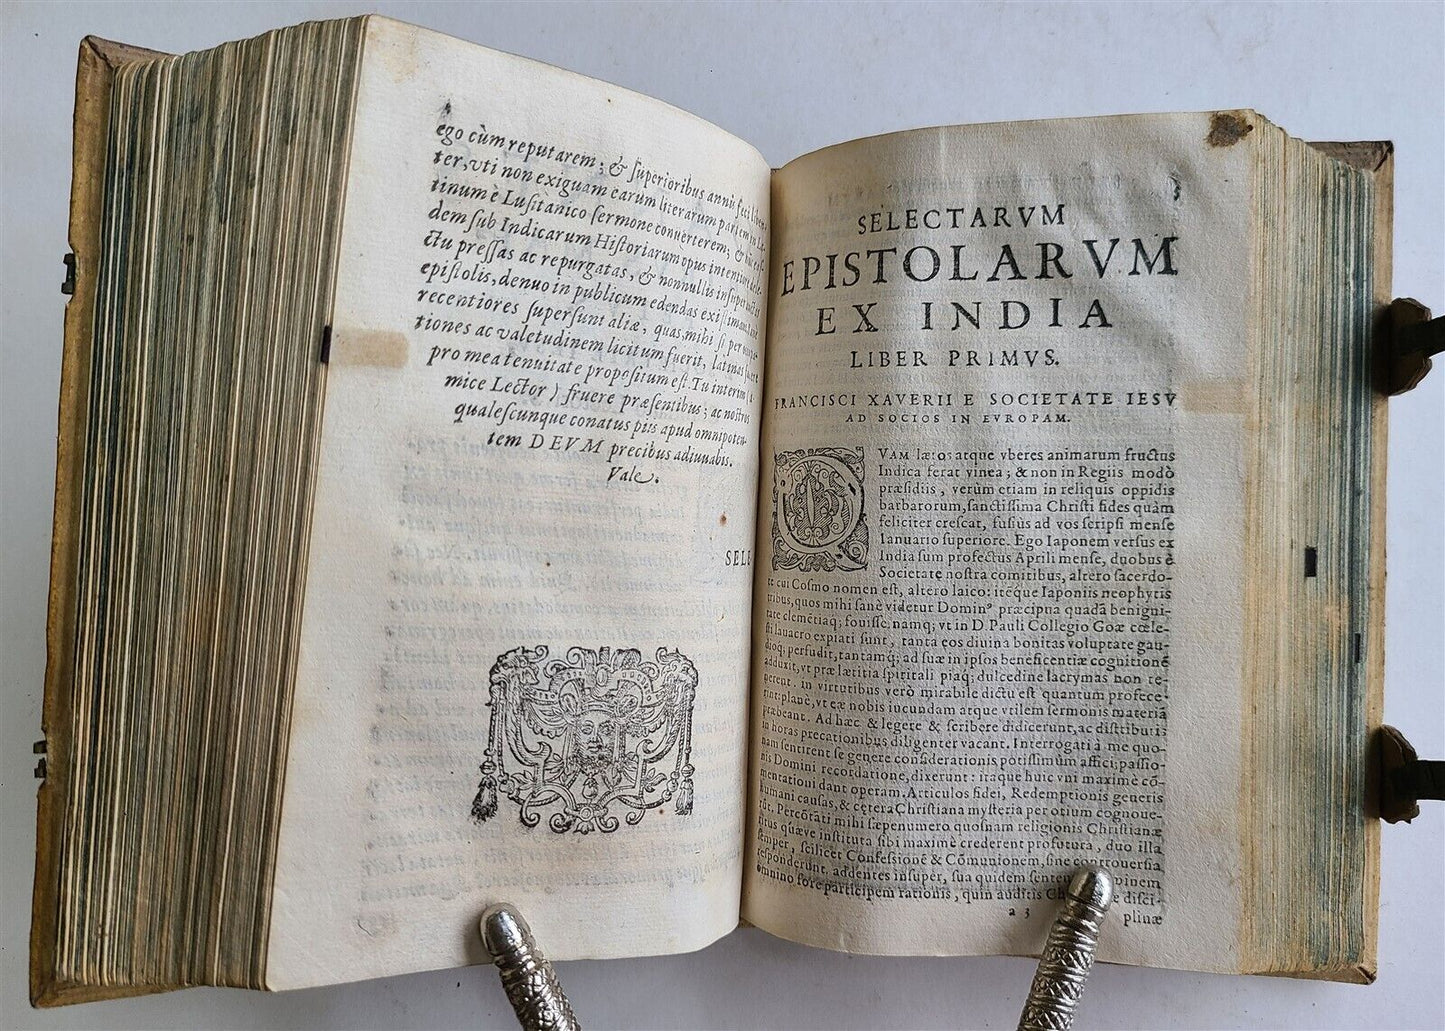 ego cùm reputarem; & ſuperioribus annis
ter, vti non exiguam earum literarum partem in La-
tinum è Luſitanico ſermone conuerterem; &
dem ſub Indicarum Hiſtoriarum opus
ctu preſſas ac repurgatas, & nonnullis inſuper
epiſtolis, denuo in publicum edendas
recentiores ſuperſunt aliæ, quas, mihi ſi per
tiones ac valetudinem licitum fuerit, latinas
pro mea tenuitate propoſitum eſt. Tu interim
mice Lector) fruere præſentibus; ac noſtros
qualeſcunque conatus piis apud omnipoten-
tem DEVM precibus adiuuabis.
Vale.
SELE
SELECTARVM
EPISTOLARVM
EX INDIA
LIBER PRIMVS.
FRANCISCI XAVERII E SOCIETATE IESV
AD SOCIOS IN EVROPAM.
QVAM lætos atque vberes animarum fructus
Indica ferat vinea; & non in Regiis modò
præſidiis, verùm etiam in reliquis oppidis
barbarorum, ſanctiſſima Chriſti fides quàm
feliciter creſcat, fuſius ad vos ſcripſi menſe
Ianuario ſuperiore. Ego Iaponem verſus ex
India ſum profectus Aprili menſe, duobus è
Societate noſtra comitibus, altero ſacerdo-
te cui Coſmo nomen eſt, altero laico: itéque Iaponiis neophytis
tribus, quos mihi ſanè videtur Dominꝰ præcipua quadã benigni-
tate clemẽtiaq; fouiſſe. namq; vt in D. Pauli Collegio Goæ cœle-
ſti lauacro expiati ſunt, tanta eos diuina bonitas voluptate gau-
dioq; perfudit, tantamq; ad ſuæ in ipſos beneficentiæ cognitionẽ
adduxit, vt præ lætitia ſpiritali piaq; dulcedine lacrymas non te-
nerent. in virtutibus verò mirabile dictu eſt quantum profece-
rint: planè, vt ex nobis iucundam atque vtilem ſermonis materiã
præbeant. Ad hæc & legere & ſcribere didicerunt, ac diſtributis
in horas precationibus diligenter vacant. Interrogati à me quo-
nam ſentirent ſe genere conſiderationis potiſſimum affici: paſſio-
nis Domini recordatione, dixerunt: itaque huic vni maximè cõ-
mentationi dant operam. Articulos fidei, Redemptionis generis
humani cauſas, & cetera Chriſtiana myſteria per otium cognoue-
rũt. Percõtati mihi ſæpenumero quoſnam religionis Chriſtianæ
ritus quæve inſtituta ſibi maximè crederent profutura, duo illa
ſemper, ſcilicet Confeſſionẽ & Cõmunionem, ſine controuerſia
reſponderunt. addentes inſuper, ſua quidem hominem
omnino fore participem rationis, quin auditis diſci-
a 3 plinæ